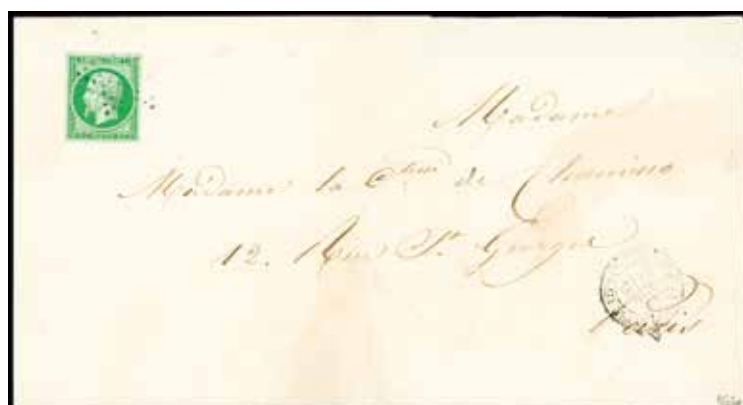 Madame
Madame la C^tesse de
12. Rue St Georges
Paris